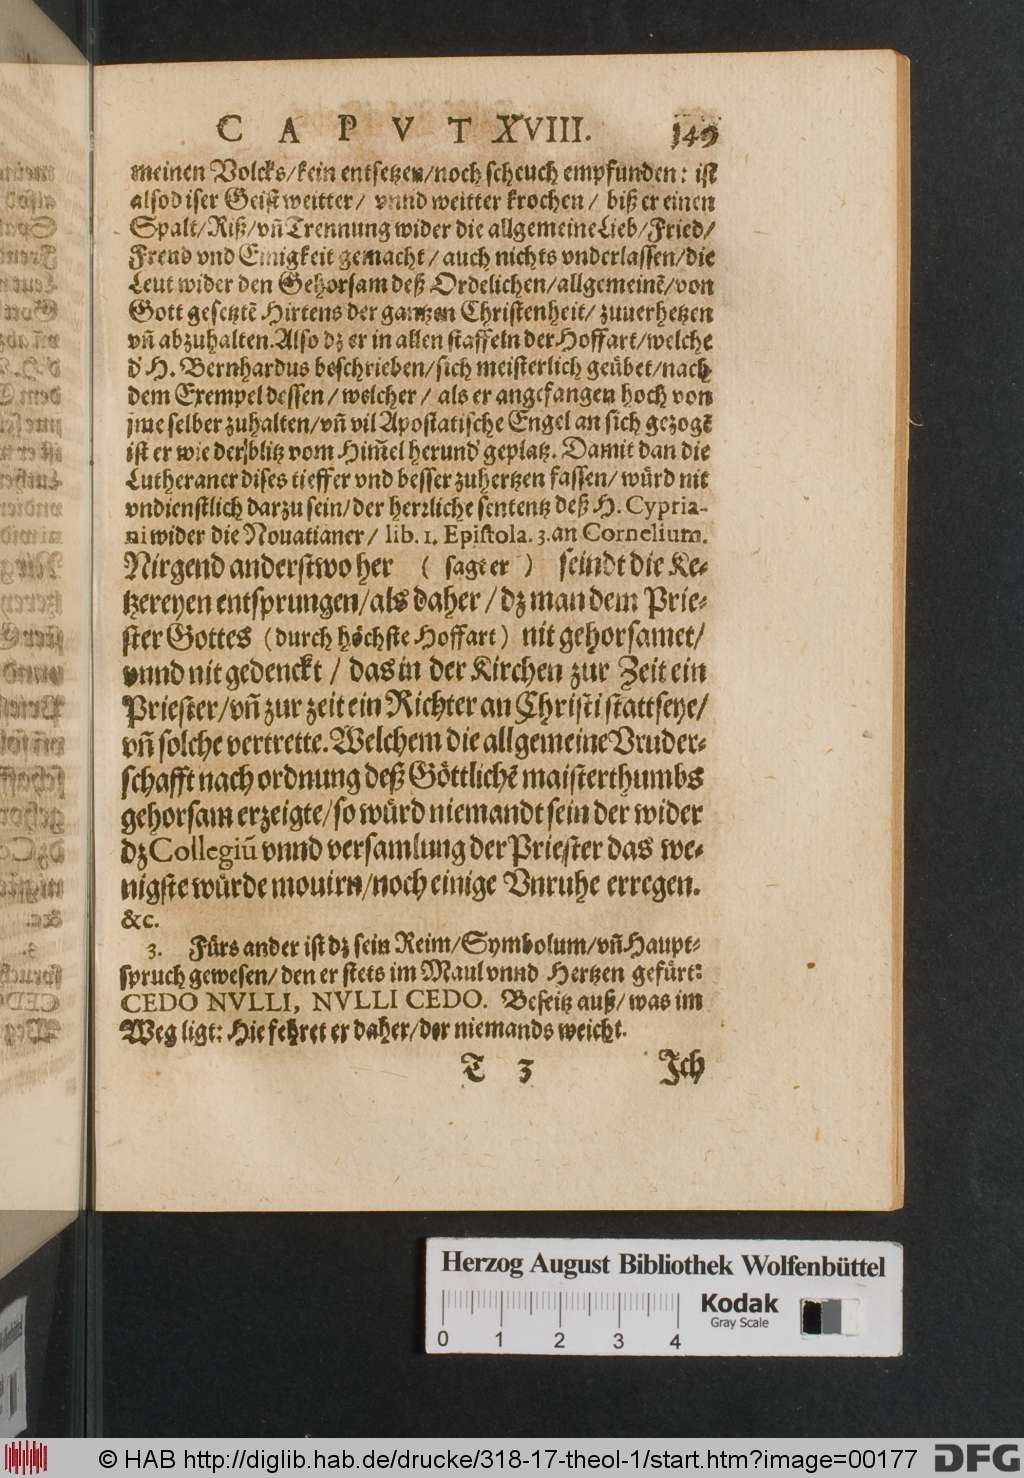 CAPVT XVIII. 149
meinen Volcks/kein entsetzen/noch scheuch empfunden: ist
also diser Geist weitter/ vnnd weitter krochen/ biß er einen
Spalt/Riß/vñ Trennung wider die allgemeine Lieb/Fried/
Freud vnd Einigkeit gemacht/ auch nichts vnderlassen/die
Leut wider den Gehorsam deß Ordelichen/allgemeinẽ/von
Gott gesetztẽ Hirtens der gantzen Christenheit/ zuuerhetzen
vñ abzuhalten. Also dz er in allen staffeln der Hoffart/welche
d' H. Bernhardus beschrieben/sich meisterlich geübet/nach
dem Exempel dessen/ welcher/ als er angefangen hoch von
jme selber zuhalten/vñ vil Apostatische Engel an sich gezogẽ
ist er wie der blitz vom Him̃el herund' geplatz. Damit dan die
Lutheraner dises tieffer vnd besser zuhertzen fassen/ wůrd nit
vndienstlich darzu sein/der herrliche sententz deß H. Cypria-
ni wider die Nouatianer/ lib. 1. Epistola. 3. an Cornelium.
Nirgend anderstwo her ( sagt er ) seindt die Ke-
tzereyen entsprungen/als daher/ dz man dem Prie-
ster Gottes (durch höchste Hoffart) nit gehorsamet/
vnnd nit gedenckt/ das in der Kirchen zur Zeit ein
Priester/vñ zur zeit ein Richter an Christi statt seye/
vñ solche vertrette. Welchem die allgemeine Bruder-
schafft nach ordnung deß Göttlichẽ maisterthumbs
gehorsam erzeigte/so wůrd niemandt sein der wider
dz Collegiũ vnnd versamlung der Priester das we-
nigste wůrde mouirn/noch einige Vnruhe erregen.
&c.
3. Fůrs ander ist dz sein Reim/Symbolum/vñ Haupt-
spruch gewesen/den er stets im Maul vnnd Hertzen gefůrt:
CEDO NVLLI, NVLLI CEDO. Beseitz auß/was im
Weg ligt: Hie fehret er daher/der niemands weicht.
T 3 Jch
Herzog August Bibliothek Wolfenbüttel
Kodak
Gray Scale
0 1 2 3 4
© HAB http://diglib.hab.de/drucke/318-17-theol-1/start.htm?image=00177
DFG